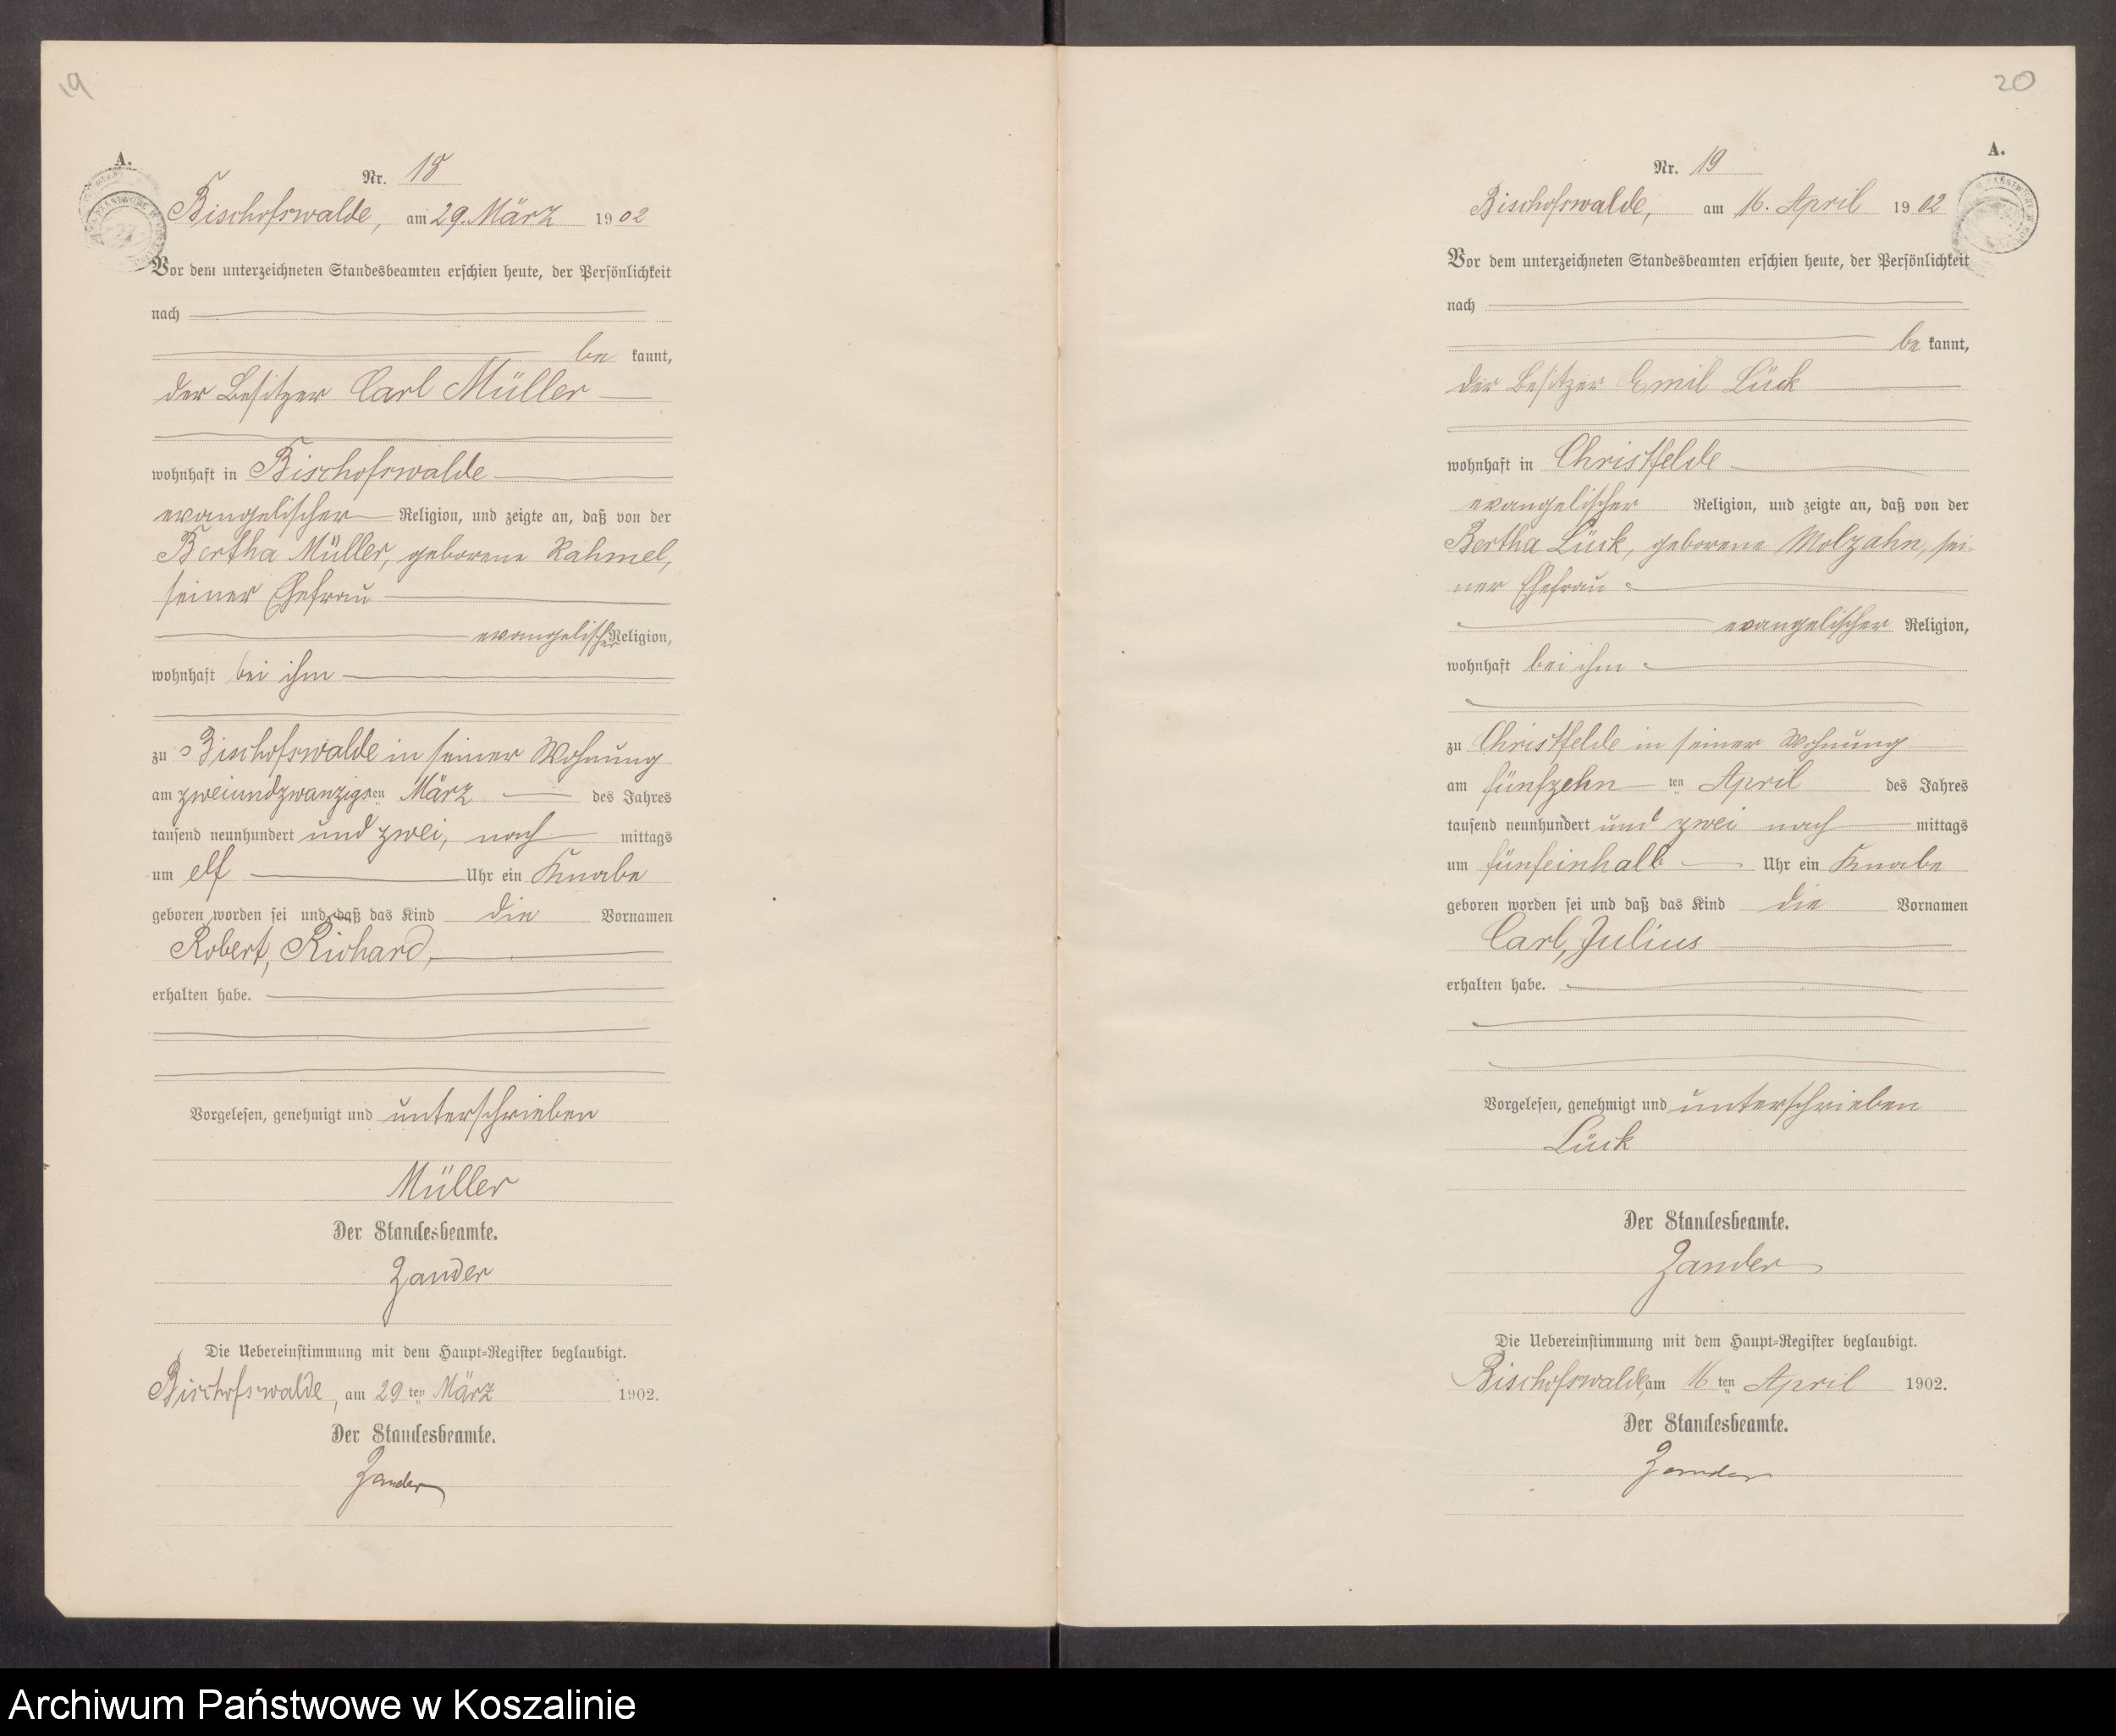 19
A.
Nr. 18
Bischofswalde, am 29. März 1902
Vor dem unterzeichneten Standesbeamten erschien heute, der Persönlichkeit
nach
be kannt,
der Besitzer Carl Müller
wohnhaft in Bischofswalde
evangelischer Religion, und zeigte an, daß von der
Bertha Müller, geborene Rahmel,
seiner Ehefrau
evangelischer Religion,
wohnhaft bei ihm
zu Bischofswalde in seiner Wohnung
am zweiundzwanzigsten März des Jahres
tausend neunhundert und zwei, nach mittags
um elf Uhr ein Knabe
geboren worden sei und daß das Kind die Vornamen
Robert, Richard,
erhalten habe.
Vorgelesen, genehmigt und unterschrieben
Müller
Der Standesbeamte.
Zander
Die Uebereinstimmung mit dem Haupt-Register beglaubigt.
Bischofswalde, am 29 ten März 1902.
Der Standesbeamte.
Zander
20
A.
Nr. 19
Bischofswalde, am 16. April 1902
Vor dem unterzeichneten Standesbeamten erschien heute, der Persönlichkeit
nach
be kannt,
der Besitzer Emil Lück
wohnhaft in Christfelde
evangelischer Religion, und zeigte an, daß von der
Bertha Lück, geborene Molzahn, sei-
ner Ehefrau
evangelischer Religion,
wohnhaft bei ihm
zu Christfelde in seiner Wohnung
am fünfzehn ten April des Jahres
tausend neunhundert und zwei nach mittags
um fünfeinhalb Uhr ein Knabe
geboren worden sei und daß das Kind die Vornamen
Carl, Julius
erhalten habe.
Vorgelesen, genehmigt und unterschrieben
Lück
Der Standesbeamte.
Zander
Die Uebereinstimmung mit dem Haupt-Register beglaubigt.
Bischofswalde, am 16 ten April 1902.
Der Standesbeamte.
Zander
Archiwum Państwowe w Koszalinie